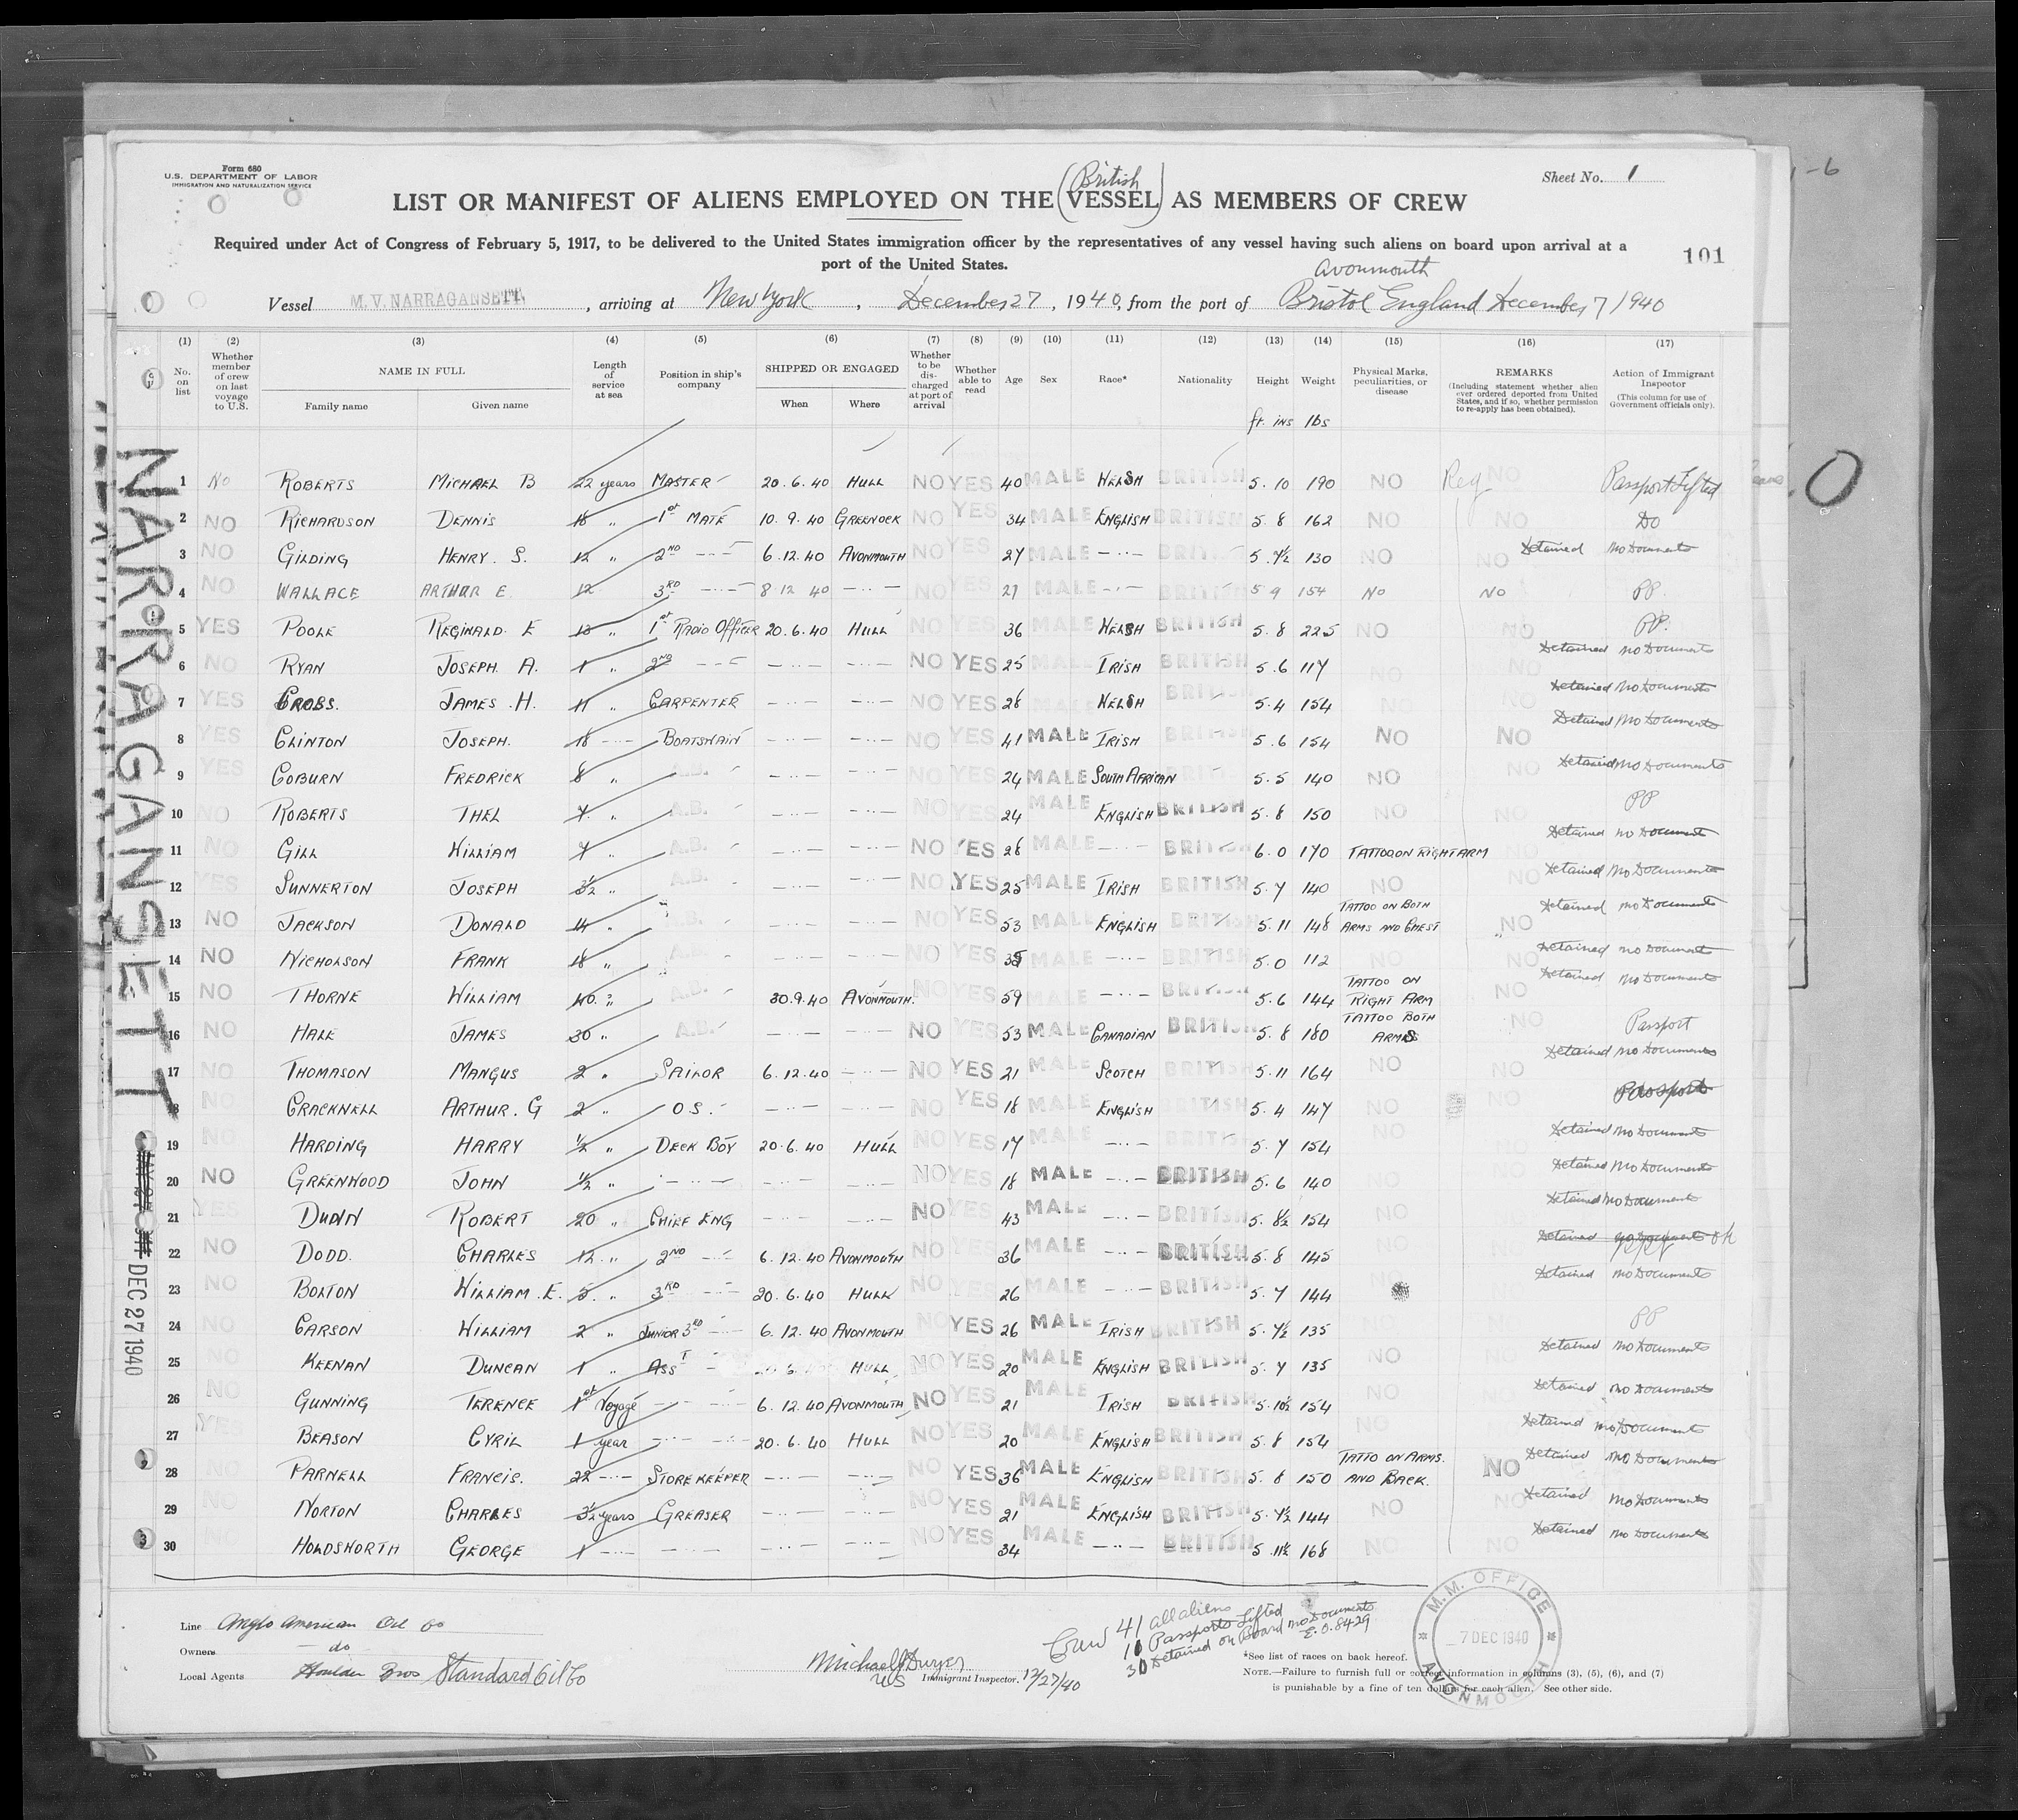 Form 680
U.S. DEPARTMENT OF LABOR
IMMIGRATION AND NATURALIZATION SERVICE
Sheet No. 1
British
LIST OR MANIFEST OF ALIENS EMPLOYED ON THE (VESSEL) AS MEMBERS OF CREW
Required under Act of Congress of February 5, 1917, to be delivered to the United States immigration officer by the representatives of any vessel having such aliens on board upon arrival at a
port of the United States.
101
Avonmouth
Vessel M.V. NARRAGANSETT, arriving at New York, December 27, 1940, from the port of Bristol England December 7/1940
(1) (2) (3) (4) (5) (6) (7) (8) (9) (10) (11) (12) (13) (14) (15) (16) (17)
No. on list
Whether member of crew on last voyage to U.S.
NAME IN FULL
Family name Given name
Length of service at sea
Position in ship's company
SHIPPED OR ENGAGED
When Where
Whether to be discharged at port of arrival
Whether able to read
Age Sex Race* Nationality Height Weight
Physical Marks, peculiarities, or disease
REMARKS
(Including statement whether alien ever ordered deported from United States, and if so, whether permission to re-apply has been obtained).
Action of Immigrant Inspector
(This column for use of Government officials only).
ft. ins lbs
1 NO ROBERTS MICHAEL B 22 years MASTER 20.6.40 HULL NO YES 40 MALE WELSH BRITISH 5.10 190 NO Reg NO Passport Lifted
2 NO RICHARDSON DENNIS 18 " 1st MATE 10.9.40 GREENOCK NO YES 34 MALE ENGLISH BRITISH 5.8 162 NO NO Do
3 NO GILDING HENRY. S. 12 " 2ND -"- 6.12.40 AVONMOUTH NO YES 27 MALE -"- BRITISH 5.7½ 130 NO NO Detained No Documents
4 NO WALLACE ARTHUR E 12 3RD -"- 8 12 40 -"- NO YES 27 MALE -"- BRITISH 5 9 154 NO NO PP.
5 YES POOLE REGINALD. E 18 " 1st RADIO OFFICER 20.6.40 HULL NO YES 36 MALE WELSH BRITISH 5.8 225 NO NO PP.
6 NO RYAN JOSEPH. A. 1 " 2ND -"- -"- -"- NO YES 25 MALE IRISH BRITISH 5.6 117 NO NO Detained No Documents
7 YES JAMES .H. 11 " CARPENTER -"- -"- NO YES 28 WELSH BRITISH 5.4 154 NO NO Detained No Documents
8 YES CLINTON JOSEPH. 18 -"- BOATSWAIN -"- -"- NO YES 41 MALE IRISH BRITISH 5.6 154 NO NO Detained No Documents
9 YES COBURN FREDRICK 8 " A.B. -"- -"- NO YES 24 MALE SOUTH AFRICAN BRITISH 5.5 140 NO NO Detained No Documents
10 NO ROBERTS THEL 7 " A.B. -"- -"- NO YES 24 MALE ENGLISH BRITISH 5.8 150 NO NO PP
11 NO GILL WILLIAM 7 " A.B. -"- -"- NO YES 28 MALE -"- BRITISH 6.0 170 TATTOO ON RIGHT ARM NO Detained No Documents
12 YES SUNNERTON JOSEPH 3½ " A.B. -"- -"- NO YES 25 MALE IRISH BRITISH 5.7 140 NO NO Detained No Documents
13 NO JACKSON DONALD 14 " A.B. -"- -"- NO YES 53 MALE ENGLISH BRITISH 5.11 148 TATTOO ON BOTH ARMS AND CHEST NO Detained No Documents
14 NO NICHOLSON FRANK 18 " A.B. -"- -"- NO YES MALE -"- BRITISH 5.0 112 NO NO Detained No Documents
15 NO THORNE WILLIAM 40 " A.B. 30.9.40 AVONMOUTH. NO YES 59 MALE -"- BRITISH 5.6 144 TATTOO ON RIGHT ARM NO Detained No Documents
16 NO HALE JAMES 30 " A.B. -"- -"- NO YES 53 MALE CANADIAN BRITISH 5.8 180 TATTOO BOTH ARMS NO Passport
17 NO THOMASON MANGUS 2 " SAILOR 6.12.40 -"- NO YES 21 MALE SCOTCH BRITISH 5.11 164 NO NO Detained No Documents
18 NO CRACKNELL ARTHUR. G 2 " O S. -"- -"- NO YES 18 MALE ENGLISH BRITISH 5.4 147 NO NO Passport
19 NO HARDING HARRY ½ " DECK BOY 20.6.40 HULL NO YES 17 MALE -"- BRITISH 5.7 154 NO Detained No Documents
20 NO GREENWOOD JOHN ½ " -"- -"- -"- NO YES 18 MALE -"- BRITISH 5.6 140 NO Detained No Documents
21 YES ROBERT 20 " CHIEF ENG -"- -"- NO YES 43 MALE -"- BRITISH 5.8½ 154 NO Detained No Documents
22 NO DODD. CHARLES 12 " 2ND -"- 6.12.40 AVONMOUTH NO YES 36 MALE -"- BRITISH 5.8 145 NO Detained No Documents OK
23 NO BOLTON WILLIAM .E. 5 " 3RD -"- 20.6.40 HULL NO YES 26 MALE -"- BRITISH 5.7 144 Detained No Documents
24 NO CARSON WILLIAM 2 " JUNIOR 3RD -"- 6.12.40 AVONMOUTH NO YES 26 MALE IRISH BRITISH 5.7½ 135 PP
25 NO KEENAN DUNCAN 1 " ASST HULL NO YES 20 MALE ENGLISH BRITISH 5.7 135 NO Detained No Documents
26 NO GUNNING TERENCE 1st Voyage -"- 6.12.40 AVONMOUTH NO YES 21 MALE IRISH BRITISH 5.10½ 154 NO Detained No Documents
27 YES BEASON CYRIL 1 year -"- 20.6.40 HULL NO YES 20 MALE ENGLISH BRITISH 5.8 154 NO Detained No Documents
28 NO PARNELL FRANCIS. 22 -"- STOREKEEPER -"- -"- NO YES 36 MALE ENGLISH BRITISH 5.8 150 TATTO ON ARMS. AND BACK. NO Detained No Documents
29 NO NORTON CHARLES 3½ years GREASER -"- -"- NO YES 21 MALE ENGLISH BRITISH 5.7½ 144 NO NO Detained No Documents
30 HOLDSWORTH GEORGE 1 -"- -"- -"- -"- NO YES 34 MALE -"- BRITISH 5.11½ 168 NO NO Detained No Documents
NARRAGANSETT
DEC 27 1940
Line Anglo American Oil Co
Owners do
Local Agents Houlder Bros Standard Oil Co
Michael J Dwyer
US Immigrant Inspector. 12/27/40
Crew 41 all aliens
11 Passports Lifted
30 Detained on Board No Documents
E.O. 8429
M.M. OFFICE
7 DEC 1940
AVONMOUTH
*See list of races on back hereof.
NOTE.—Failure to furnish full or correct information in columns (3), (5), (6), and (7)
is punishable by a fine of ten dollars for each alien. See other side.